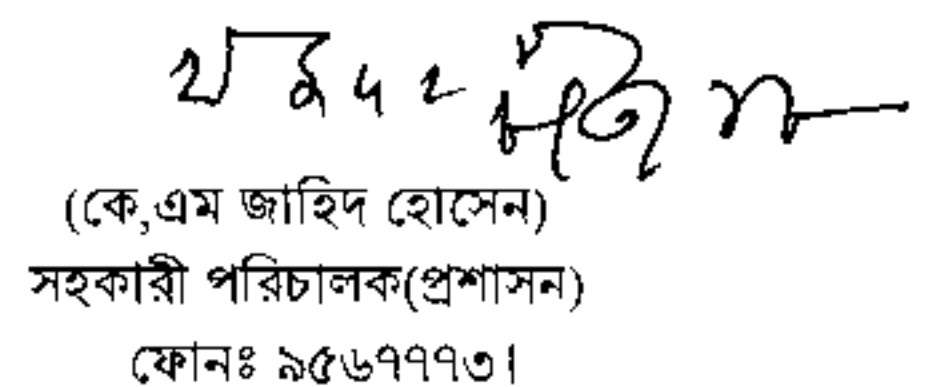 (কে,এম জাহিদ হোসেন)
সহকারী পরিচালক(প্রশাসন)
ফোনঃ ৯৫৬৭৭৭৩।